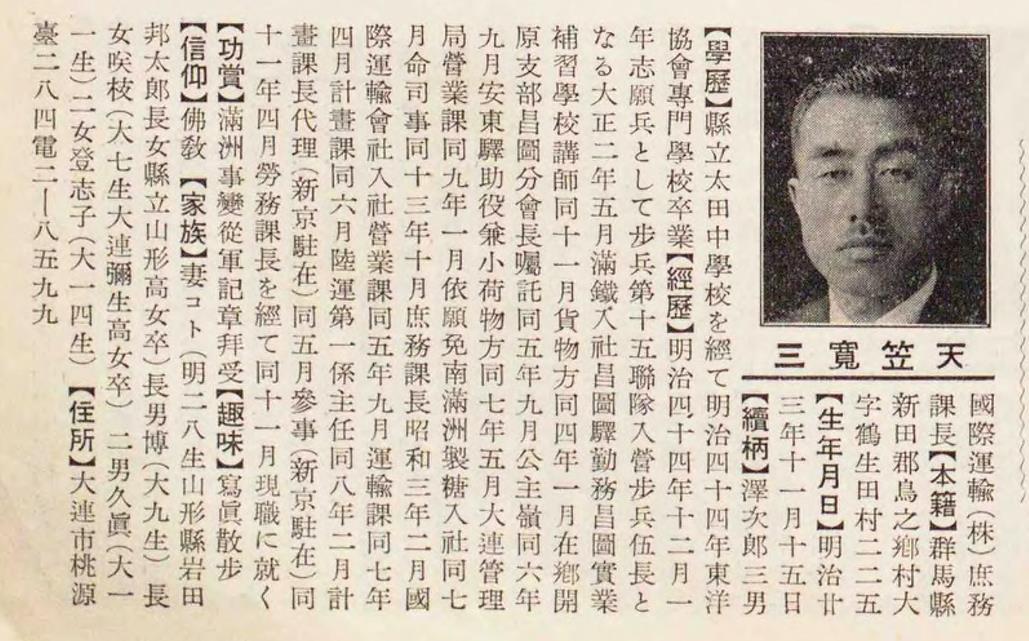 天笠寬三
國際運輸(株)庶務
課長【本籍】群馬縣
新田郡鳥之鄕村大
字鶴生田村二二五
【生年月日】明治廿
三年十一月十五日
【續柄】澤次郎三男
【學歷】縣立太田中學校を經て明治四十四年東洋
協會專門學校卒業【經歷】明治四十四年十二月一
年志願兵として步兵第十五聯隊入營步兵伍長と
なる大正二年五月滿鐵入社昌圖驛勤務昌圖實業
補習學校講師同十一月貨物方同四年一月在鄕開
原支部昌圖分會長囑託同五年九月公主嶺同六年
九月安東驛助役兼小荷物方同七年五月大連管理
局營業課同九年一月依願免南滿洲製糖入社同七
月命司事同十三年十月庶務課長昭和三年二月國
際運輸會社入社營業課同五年九月運輸課同七年
四月計畫課同六月陸運第一係主任同八年二月計
畫課長代理(新京駐在)同五月參事(新京駐在)同
十一年四月勞務課長を經て同十一月現職に就く
【功賞】滿洲事變從軍記章拜受【趣味】寫眞散步
【信仰】佛敎【家族】妻コト(明二八生山形縣岩田
邦太郎長女縣立山形高女卒)長男博(大九生)長
女咲枝(大七生大連彌生高女卒)二男久眞(大一
一生)二女登志子(大一四生)【住所】大連市桃源
臺二八四電二―八五九九